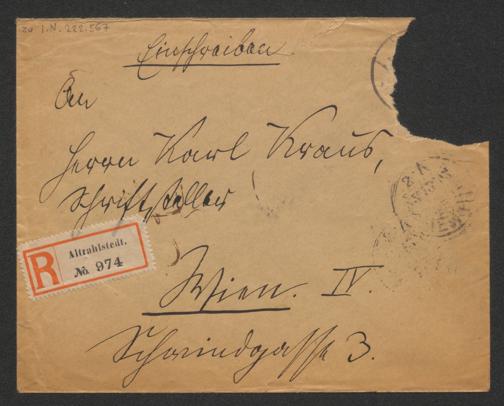 zu I.N. 222.567
Einschreiben
An
Herrn Karl Kraus,
Schriftsteller
R
Altrahlstedt.
No. 974
Wien. IV.
Schwindgasse 3.